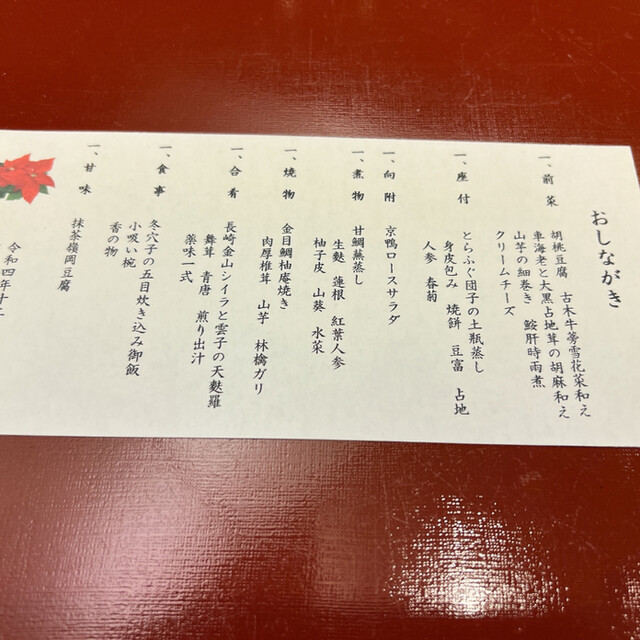 おしながき
一、前菜
胡桃豆腐 古木牛蒡雪花菜和え
車海老と大黒占地茸の胡麻和え
山芋の細巻き 鮟肝時雨煮
クリームチーズ
一、座付
とらふぐ団子の土瓶蒸し
身皮包み 焼餅 豆富 占地
人参 春菊
一、向附
京鴨ロースサラダ
一、煮物
甘鯛蕪蒸し
生麩 蓮根 紅葉人参
柚子皮 山葵 水菜
一、焼物
金目鯛柚庵焼き
肉厚椎茸 山芋 林檎ガリ
一、合肴
長崎金山シイラと雲子の天麩羅
舞茸 青唐 煎り出汁
薬味一式
一、食事
冬穴子の五目炊き込み御飯
小吸い椀
香の物
一、甘味
抹茶嶺岡豆腐
令和四年十二